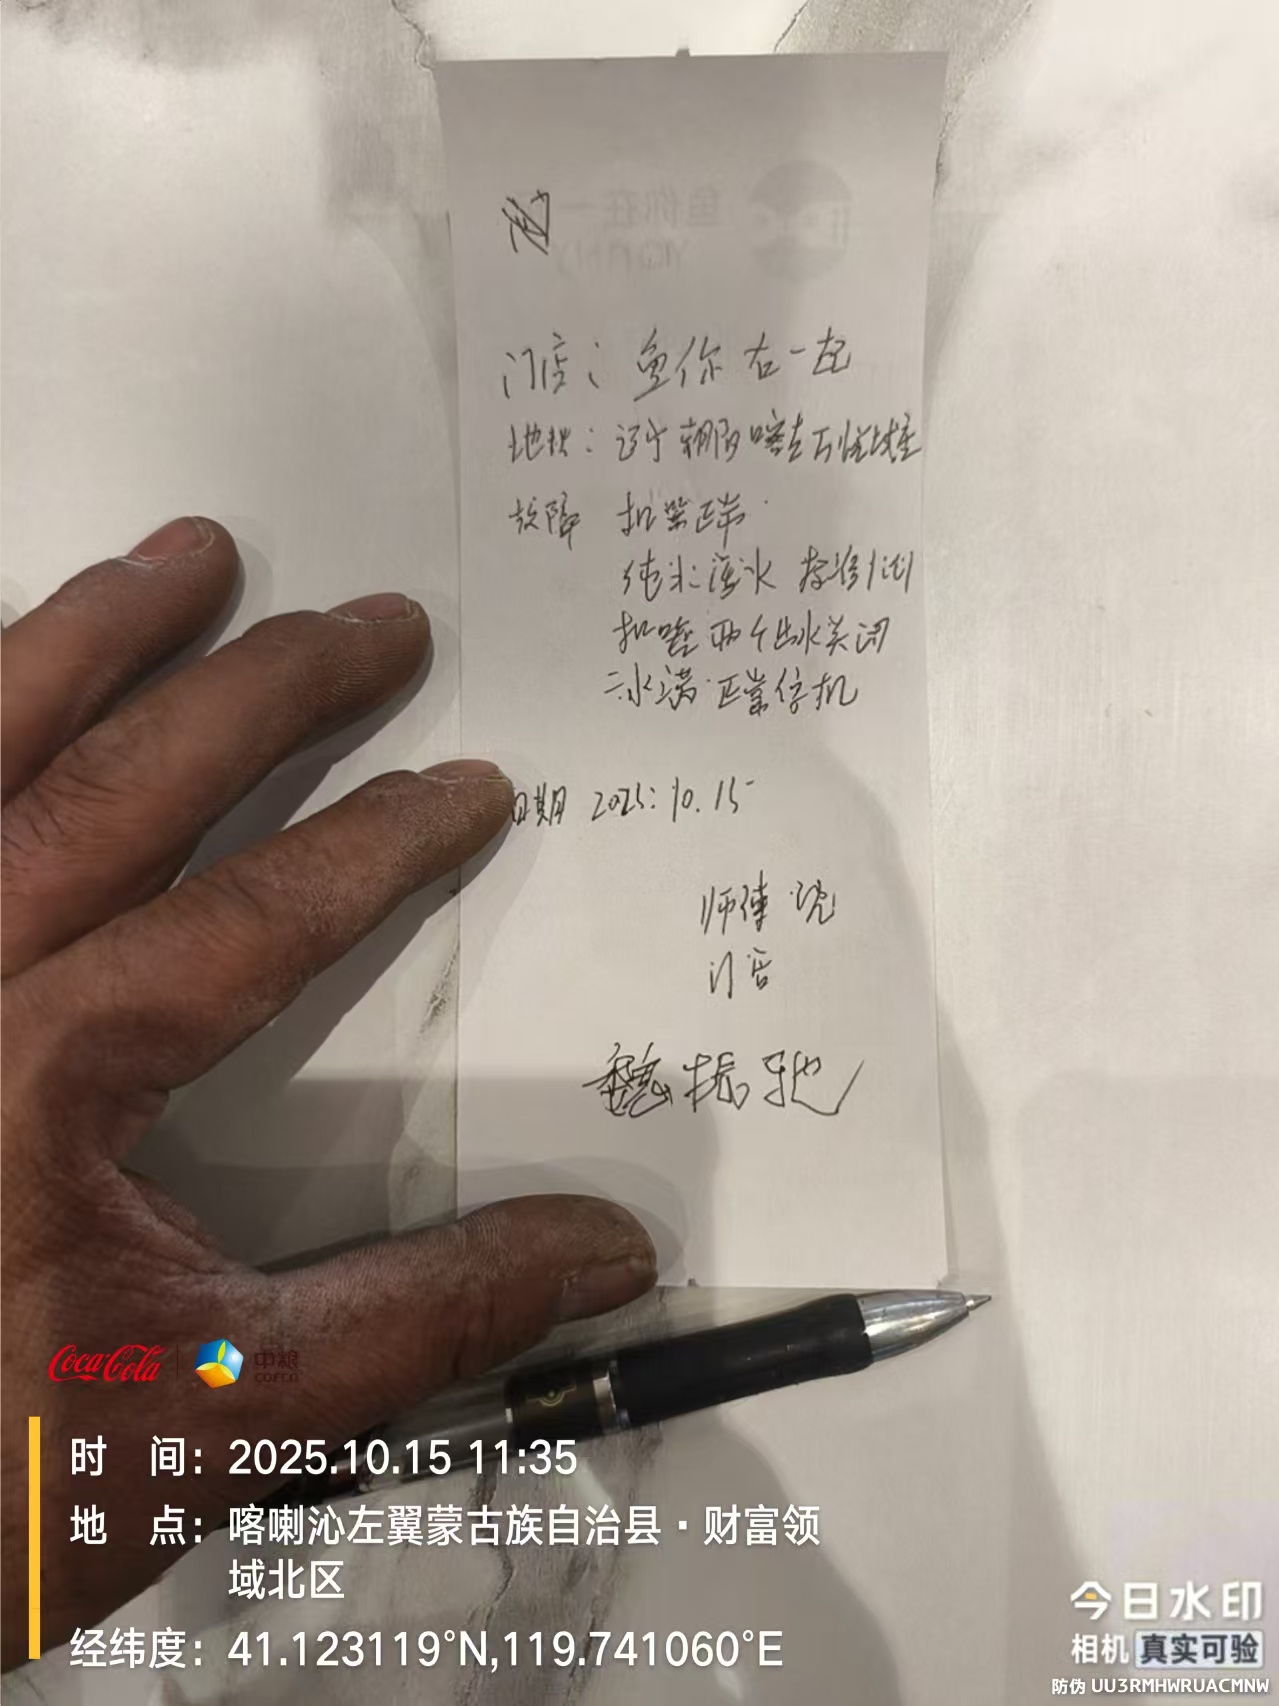 门店：鱼你在一起
地址：辽宁朝阳喀左万悦城
故障 机器正常
纯水废水
机器两个出水关闭
水满正常停机
日期 2025.10.15
师傅 沈
门店
魏振驰
Coca-Cola 中粮 COFCO
时 间：2025.10.15 11:35
地 点：喀喇沁左翼蒙古族自治县·财富领
域北区
经纬度：41.123119°N,119.741060°E
今日水印
相机 真实可验
防伪 UU3RMHWRUACMNW